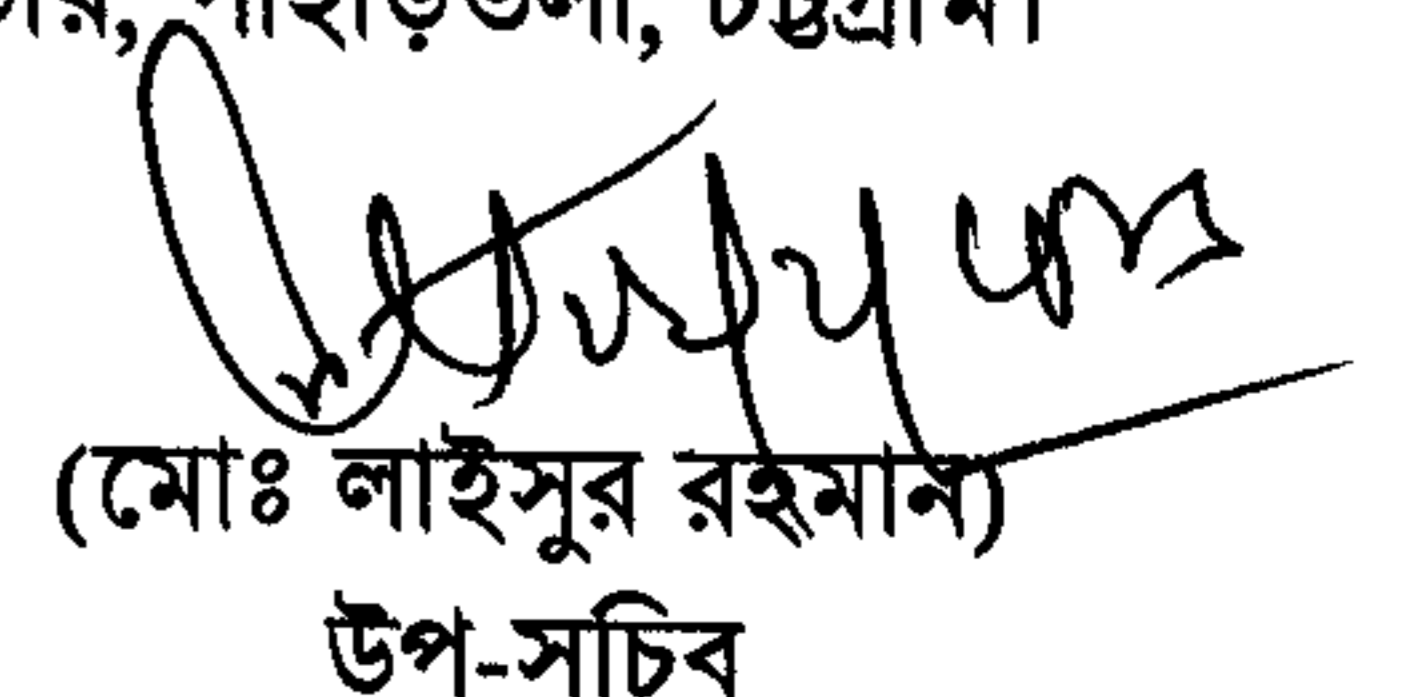 পাহাড়তলী, চট্টগ্রাম।
(মোঃ লাইসুর রহমান)
উপ-সচিব